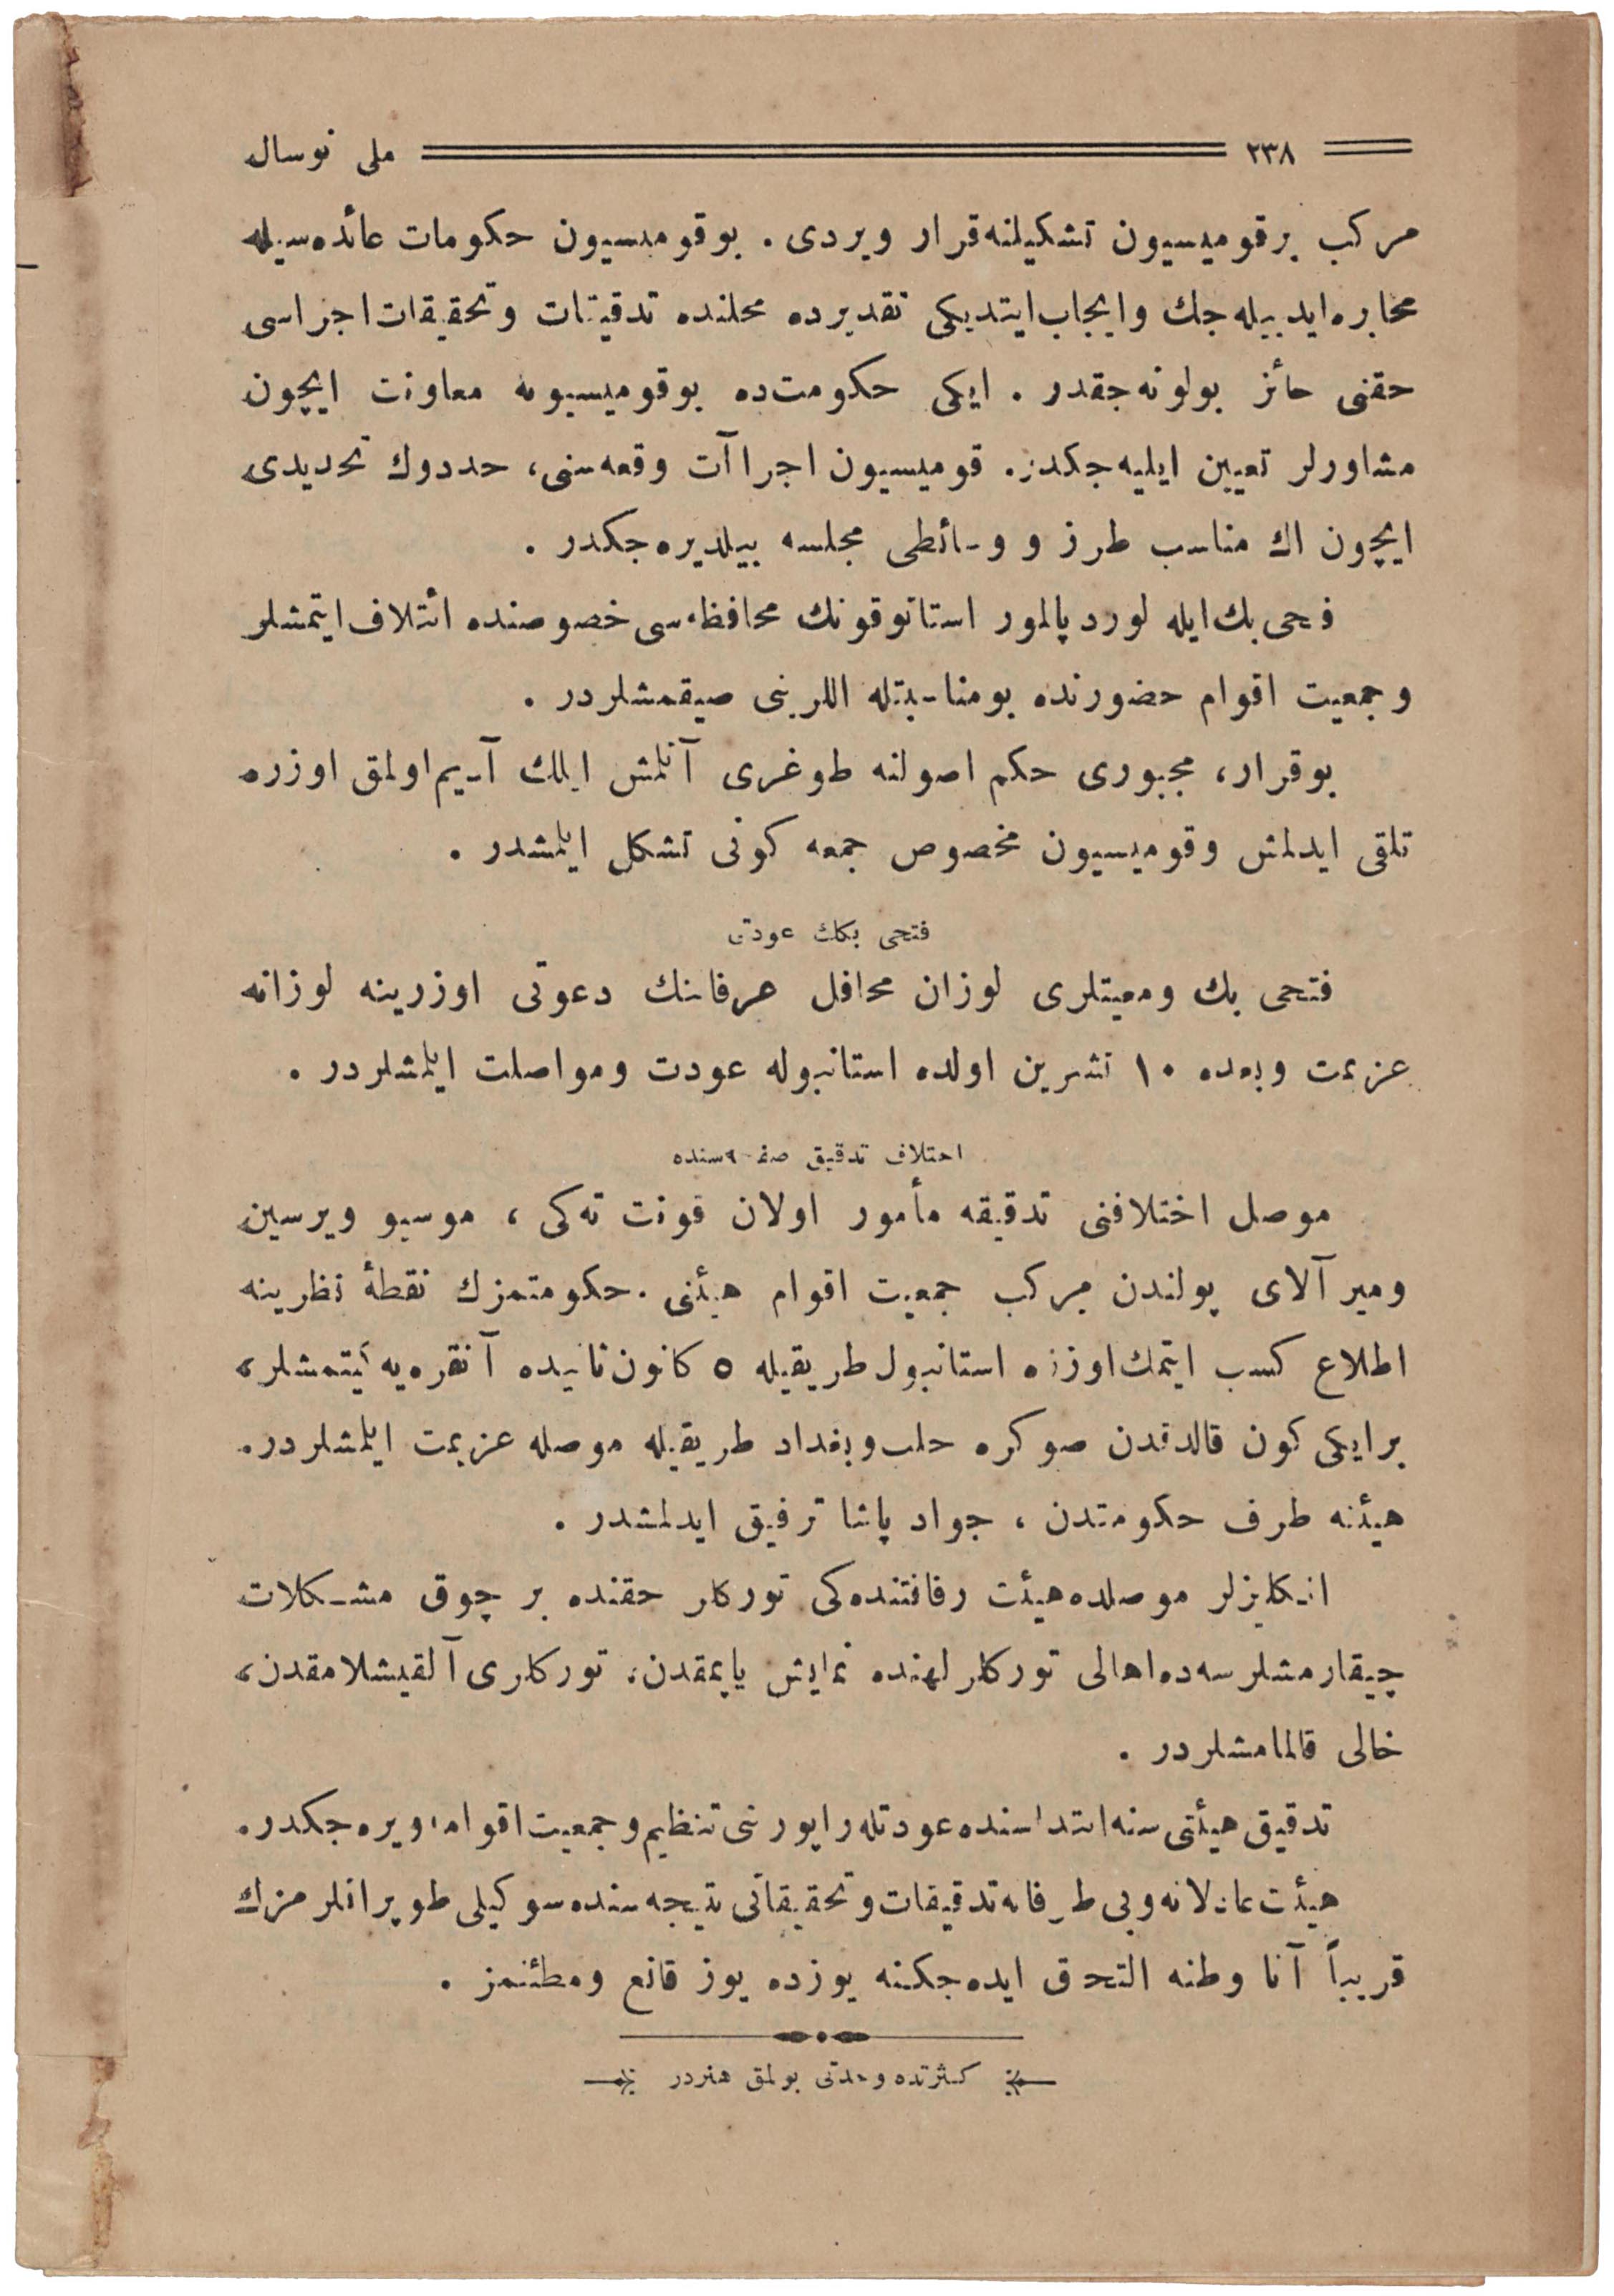 ٢٣٨ ملی نوسال
مركب بر قومیسیون تشكیلنه قرار ویردی . بو قومیسیون حكومات عائده‌سیله
مخابره ایدبیله‌جك و ایجاب ایتدیكی تقدیرده محلنده تدقیقات و تحقیقات اجراسی
حقنی حائز بولونه‌جقدر . ایكی حكومت‌ده بو قومیسیونه معاونت ایچون
مشاورلر تعیین ایلیه‌جكدر. قومیسیون اجراآت وقعه‌سنی، حددوك تحدیدی
ایچون اك مناسب طرز و وسائطی مجلسه بیلدیره‌جكدر .
فتحی بك ایله لورد پالمور استاتوقونك محافظه‌سی خصوصنده ائتلاف ایتمشلر
و جمعیت اقوام حضورنده بو مناسبتله اللرینی صیقمشلردر .
بو قرار، مجبوری حكم اصولنه طوغری آتلمش ایلك آدیم اولمق اوزره
تلقی ایدلمش و قومیسیون مخصوص جمعه كونی تشكل ایلمشدر .
فتحی بكك عودتی
فتحی بك و معیتلری لوزان محافل عرفاننك دعوتی اوزرینه لوزانه
عزیمت و بعده ١٠ تشرین اولده استانبوله عودت و مواصلت ایلمشلردر .
اختلاف تدقیق صفحه‌سنده
موصل اختلافنی تدقیقه مأمور اولان قونت ته‌كی ، موسیو ویرسین
و میرآلای پولندن مركب جمعیت اقوام هیئتی . حكومتمزك نقطۀ نظرینه
اطلاع كسب ایتمك اوزره استانبول طریقیله ٥ كانون ثانیده آنقره‌یه كیتمشلر،
بر ایكی كون قالدقدن صوكره حلب و بغداد طریقیله موصله عزیمت ایلمشلردر.
هیئته طرف حكومتدن ، جواد پاشا ترفیق ایدلمشدر .
انـكلیزلر موصلده هیئت رفاقتنده‌كی توركلر حقنده بر چوق مشـكلات
چیقارمشلرسه‌ده اهالی توركلر لهنده نمایش یاپمقدن، توركلری آلقیشلامقدن،
خالی قالمامشلردر .
تدقیق هیئتی سنه ابتداسنده عودتله راپورنی تنظیم و جمعیت اقوامه ویره‌جكدر.
هیئت عادلانه و بی‌طرفانه تدقیقات و تحقیقاتی نتیجه‌سنده سوكیلی طوپراقلرمزك
قریباً آنا وطنه التحاق ایده‌جكنه یوزده یوز قانع و مطئنمز .
كـثرتده وحدتی بولمق هنردر